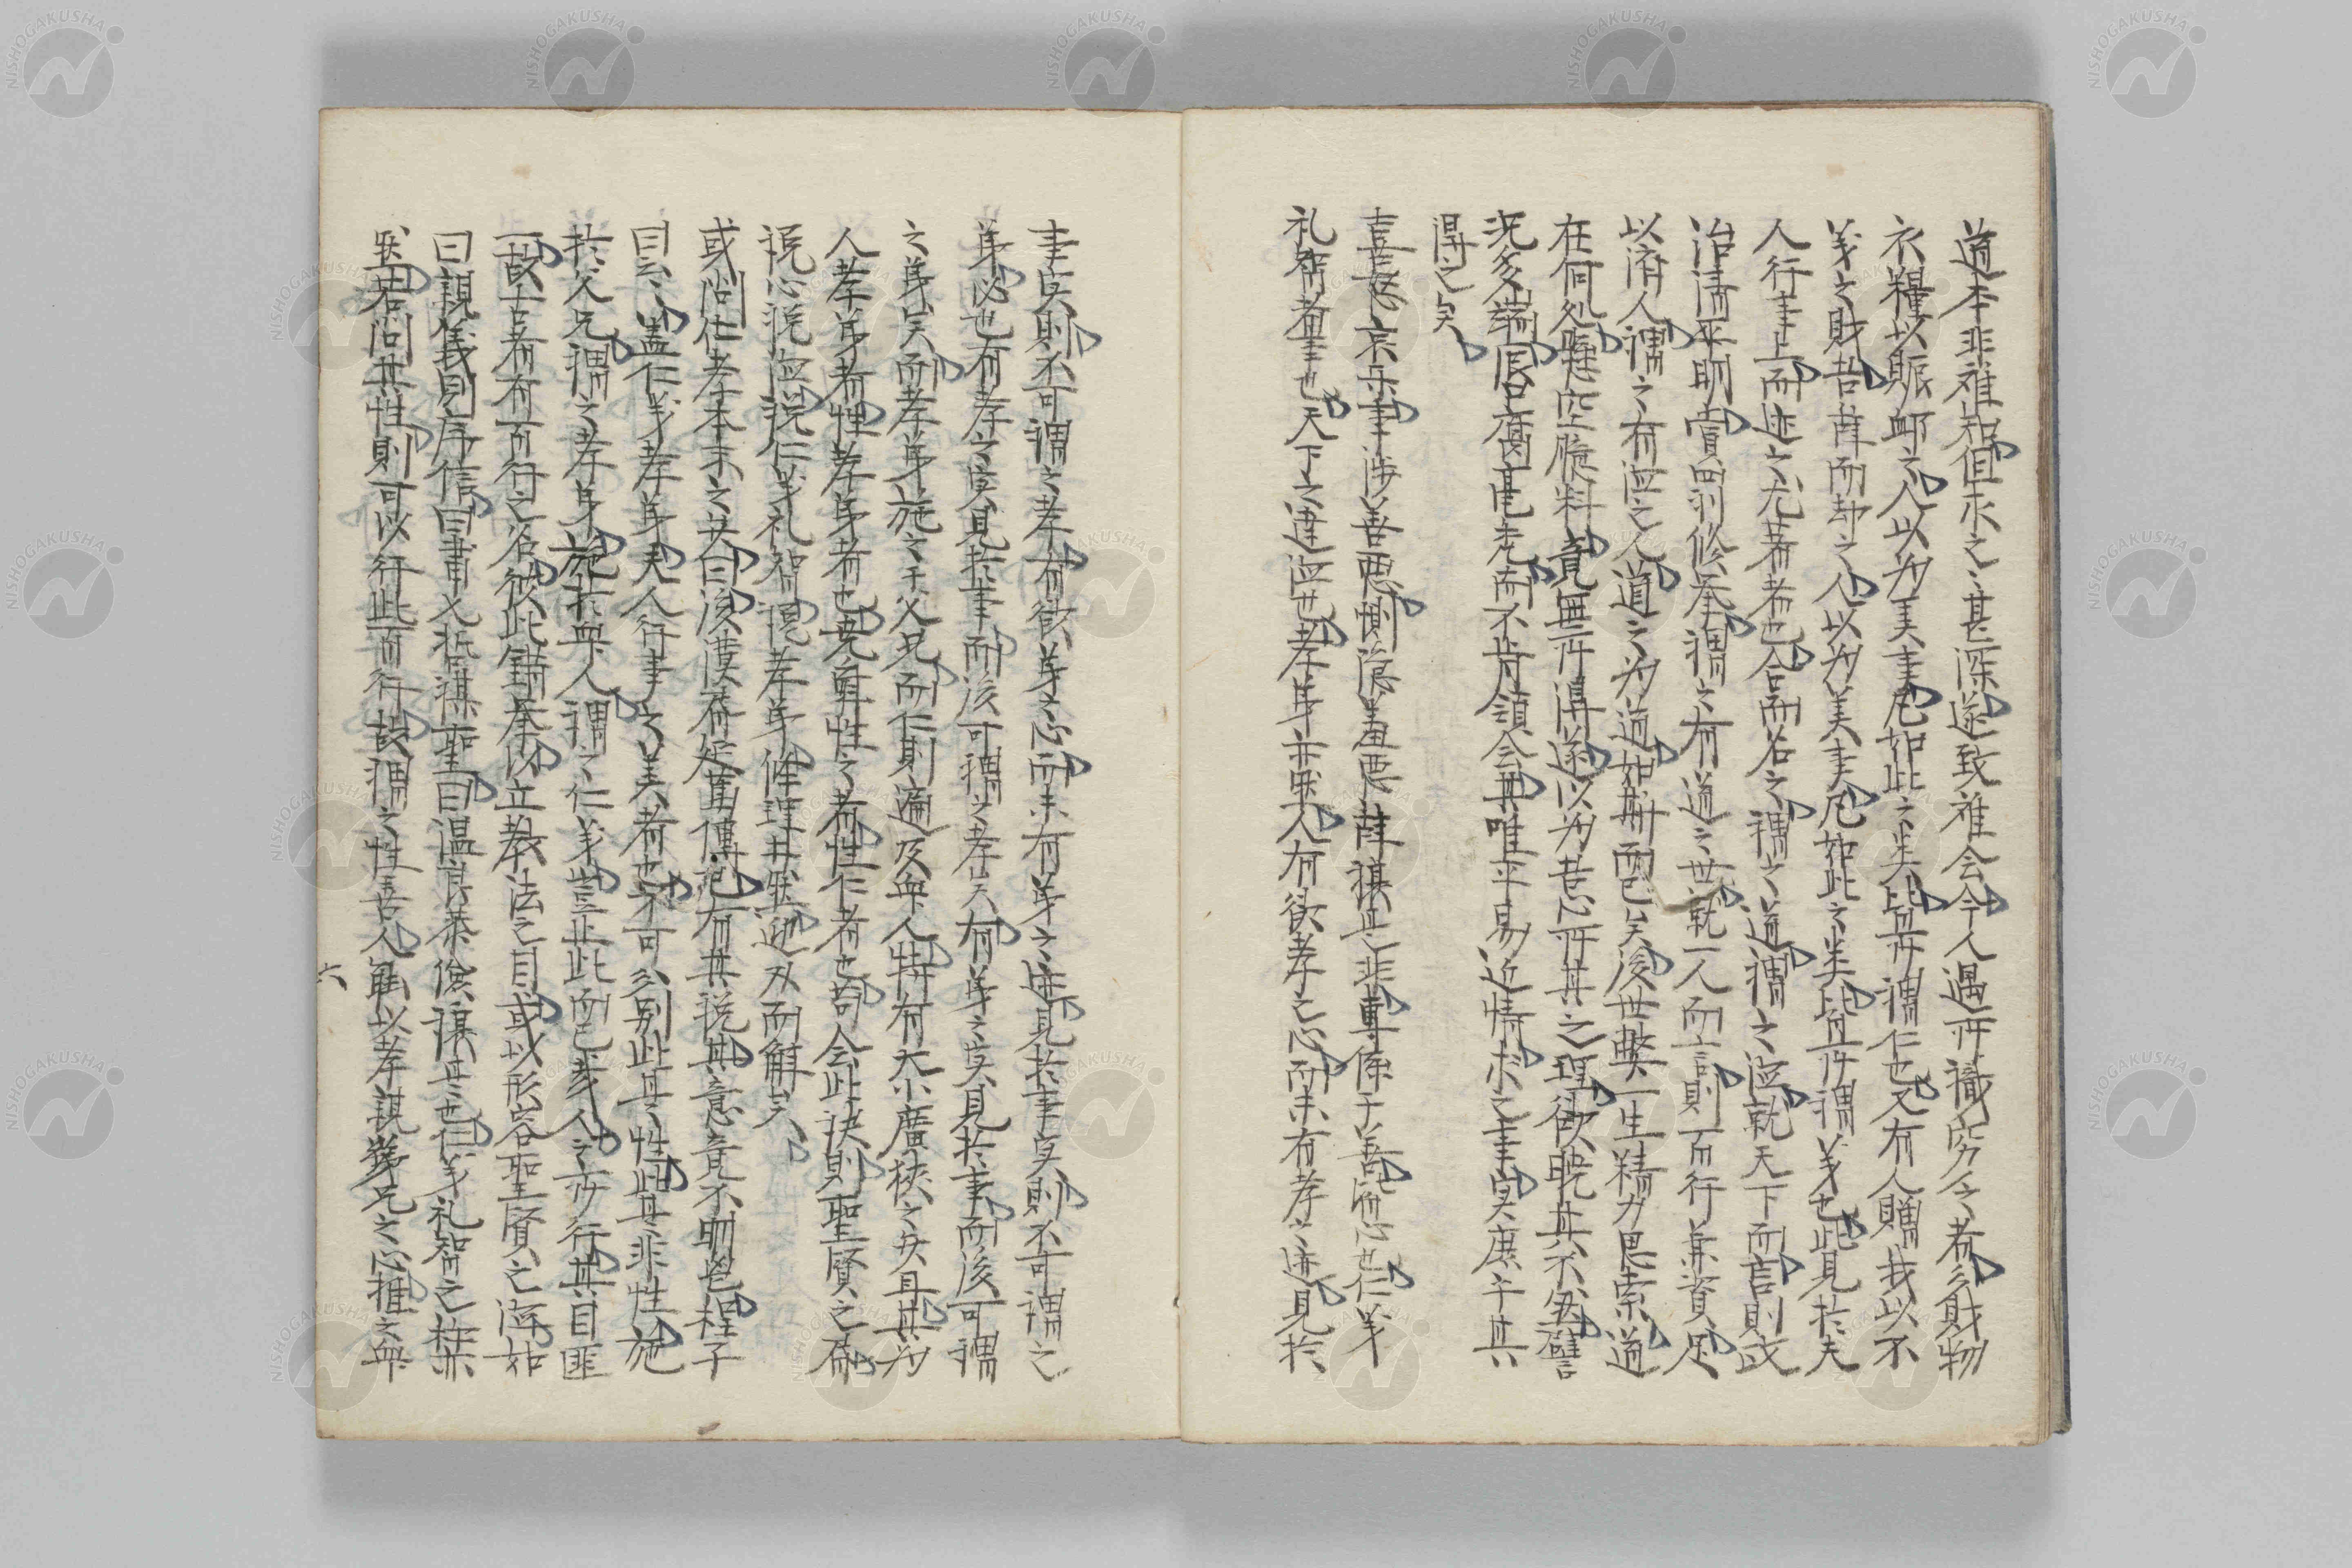 道本非難知但求之〻甚深遂致難会今人遇所識窮乏者分財物
衣糧以賑䘏之人以为美事凡如此之类皆所謂仁也又有人贈我以不
義之財苦辞而却之人以为美事凡如此之类皆所謂義也此見於夫
人行事上而迹之尤著者也合而名之謂之道謂之徳就天下而言則政
治清平明賞罰修挙謂之有道之世就一人而言則而行兼資足
以済人謂之有徳之人道之为道如斯而已矣後世弊一生精力思索道
在何処懸空臆料竟無所得遂以为吾心所具之理欲晩其不伝譬
况多端唇腐毫禿而不肯領会其唯平易近情求之事実庶乎其
得之矣
喜怒哀楽事渉善悪惻隠羞悪辞譲是非專係于善所心也仁義
礼智者事也天下之達徳也孝弟亦然人有欲孝之心而未有孝之迹見於
事実則不可謂之孝有欲弟之心而未有弟之迹見於事実則不可謂之
弟必也有孝之実見於事而後可謂之孝矣有弟之実見於事而後可謂
之弟矣而孝弟施之于父兄而仁則遍及衆人特有大小廣狭之失耳其为
人孝弟者性孝弟者也堯舜性之者性仁者也苟会此訣則聖賢之

説心説徳説仁義礼智説孝弟條理井然迎刃而解矣
或問仁孝本末之失曰後漢有延篤傳記有其説其意竟不明邕程子
曰云〻蓋仁義孝弟夫人行事之美者也不可分別此其〻性此其〻非性施
於父兄謂之孝弟施於衆人謂之仁義豈止此而已哉人之所行其目匪
一故古者有而行之名彼此錯挙以立教法之目或以形容聖賢之徳如
曰親義則序信曰肅乂哲謀聖曰温良恭儉譲是也仁義礼智之於亦
然若問其性則可以行此而行故謂之性善人能以孝親弟兄之心推之衆
六